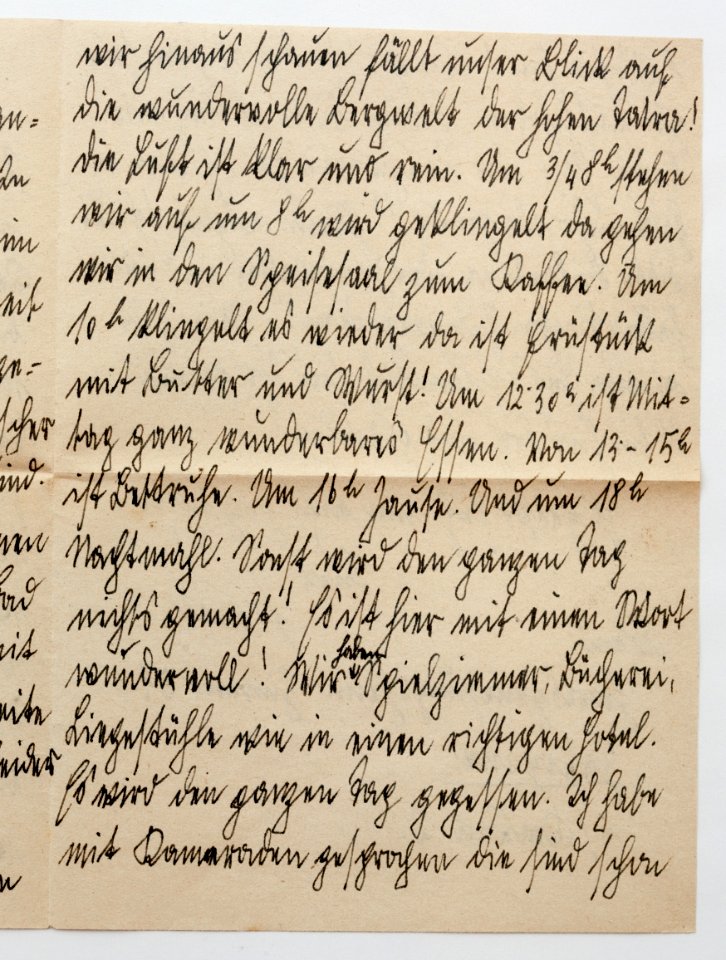 wir hinaus schauen fällt unser Blick auf
die wundervolle Bergwelt der hohen Tatra!
die Luft ist klar und rein. Um 3/4 8 h stehen
wir auf um 8 h wird geklingelt da gehen
wir in den Speisesaal zum Kaffee. Um
10 h klingelt es wieder da ist Früstück
mit Butter und Wurst! Um 12·30 h ist Mit=
tag ganz wunderbares Essen. Von 13 - 15 h
ist Bettruhe. Um 16 h Jause. Und um 18 h
Nachtmahl. Sonst wird den ganzen Tag
nichts gemacht! Es ist hier mit einen Wort
wundervoll! Wir haben Spielzimmer, Bücherei,
Liegestühle wie in einen richtigen Hotel.
Es wird den ganzen Tag gegessen. Ich habe
mit Kameraden gesprochen die sind schon